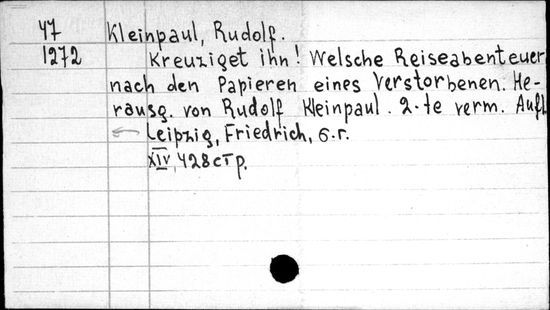 47 Kleinpaul, Rudolf.
1272 Kreuziget ihn! Welsche Reiseabenteuer
nach den Papieren eines Verstorbenen. He-
rausg. von Rudolf Kleinpaul. 2-te verm. Aufl.
Leipzig, Friedrich, б.г.
XIV, 428 стр.